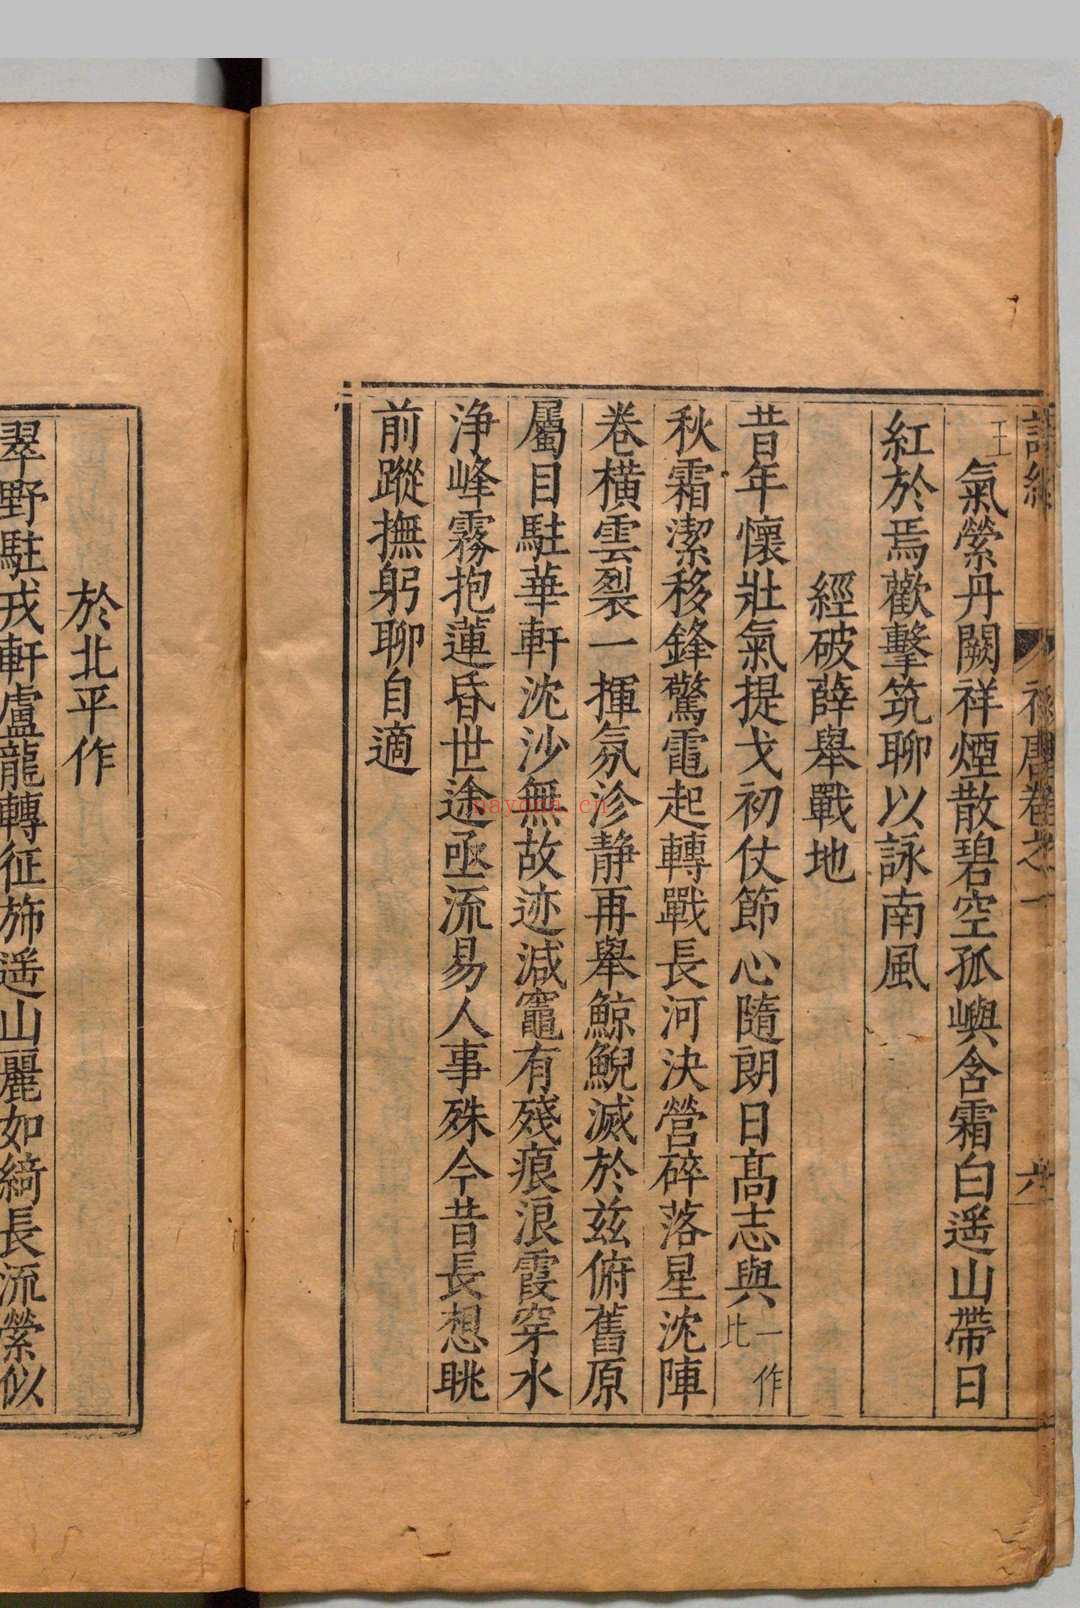 詩紀 初唐卷之一 六
王氣縈丹闕祥煙散碧空孤嶼含霜白遥山帶日
紅於焉歡擊筑聊以詠南風
經破薛舉戰地
昔年懷壯氣提戈初仗節心隨朗日髙志與一作比
秋霜潔移鋒驚電起轉戰長河決營碎落星沈陣
卷横雲裂一揮氛沴静再舉鯨鯢滅於兹俯舊原
屬目駐華軒沈沙無故迹減竈有殘痕浪霞穿水
浄峰霧抱蓮昏世途亟流易人事殊今昔長想眺
前蹤撫躬聊自適
於北平作
翠野駐戎軒盧龍轉征斾遥山麗如綺長流縈似
nayona.cn